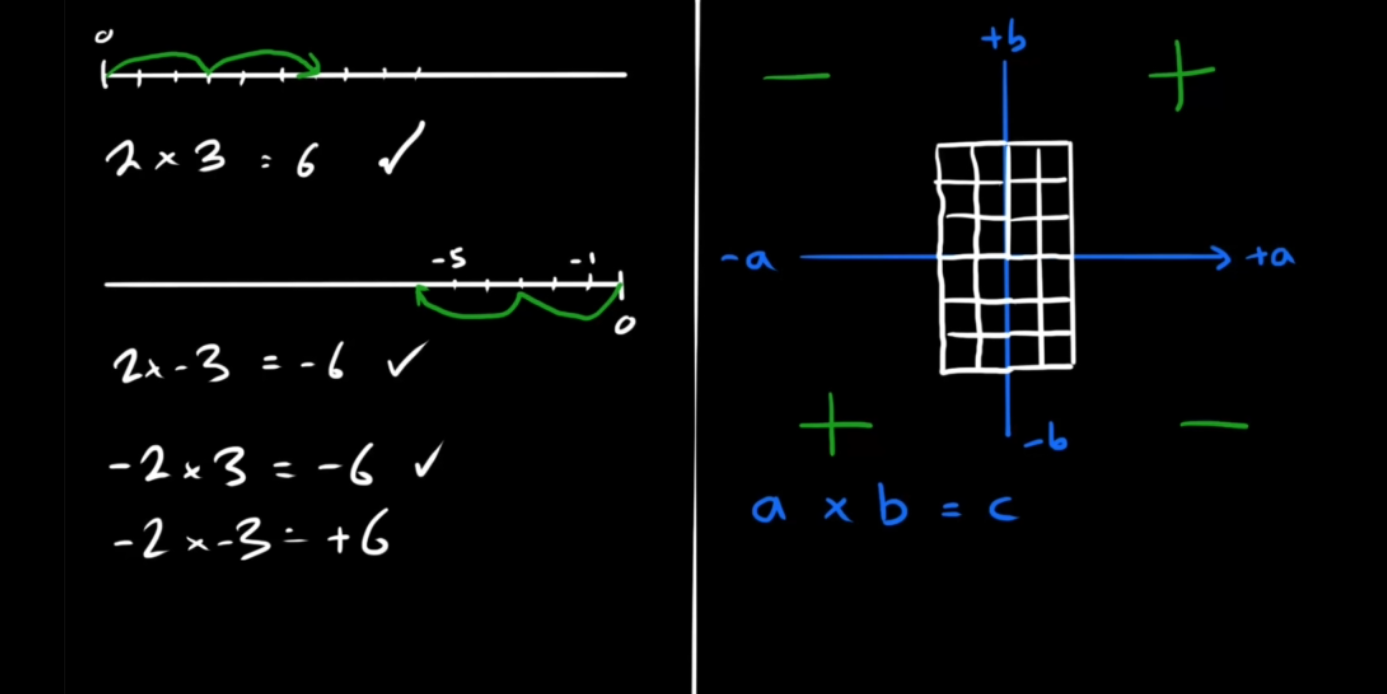 0
2 × 3 = 6 ✓
-5 -1
0
2x-3 = -6 ✓
-2 × 3 = -6 ✓
-2 × -3 = +6
+b
− +
-a +a
+ −
-b
a × b = c